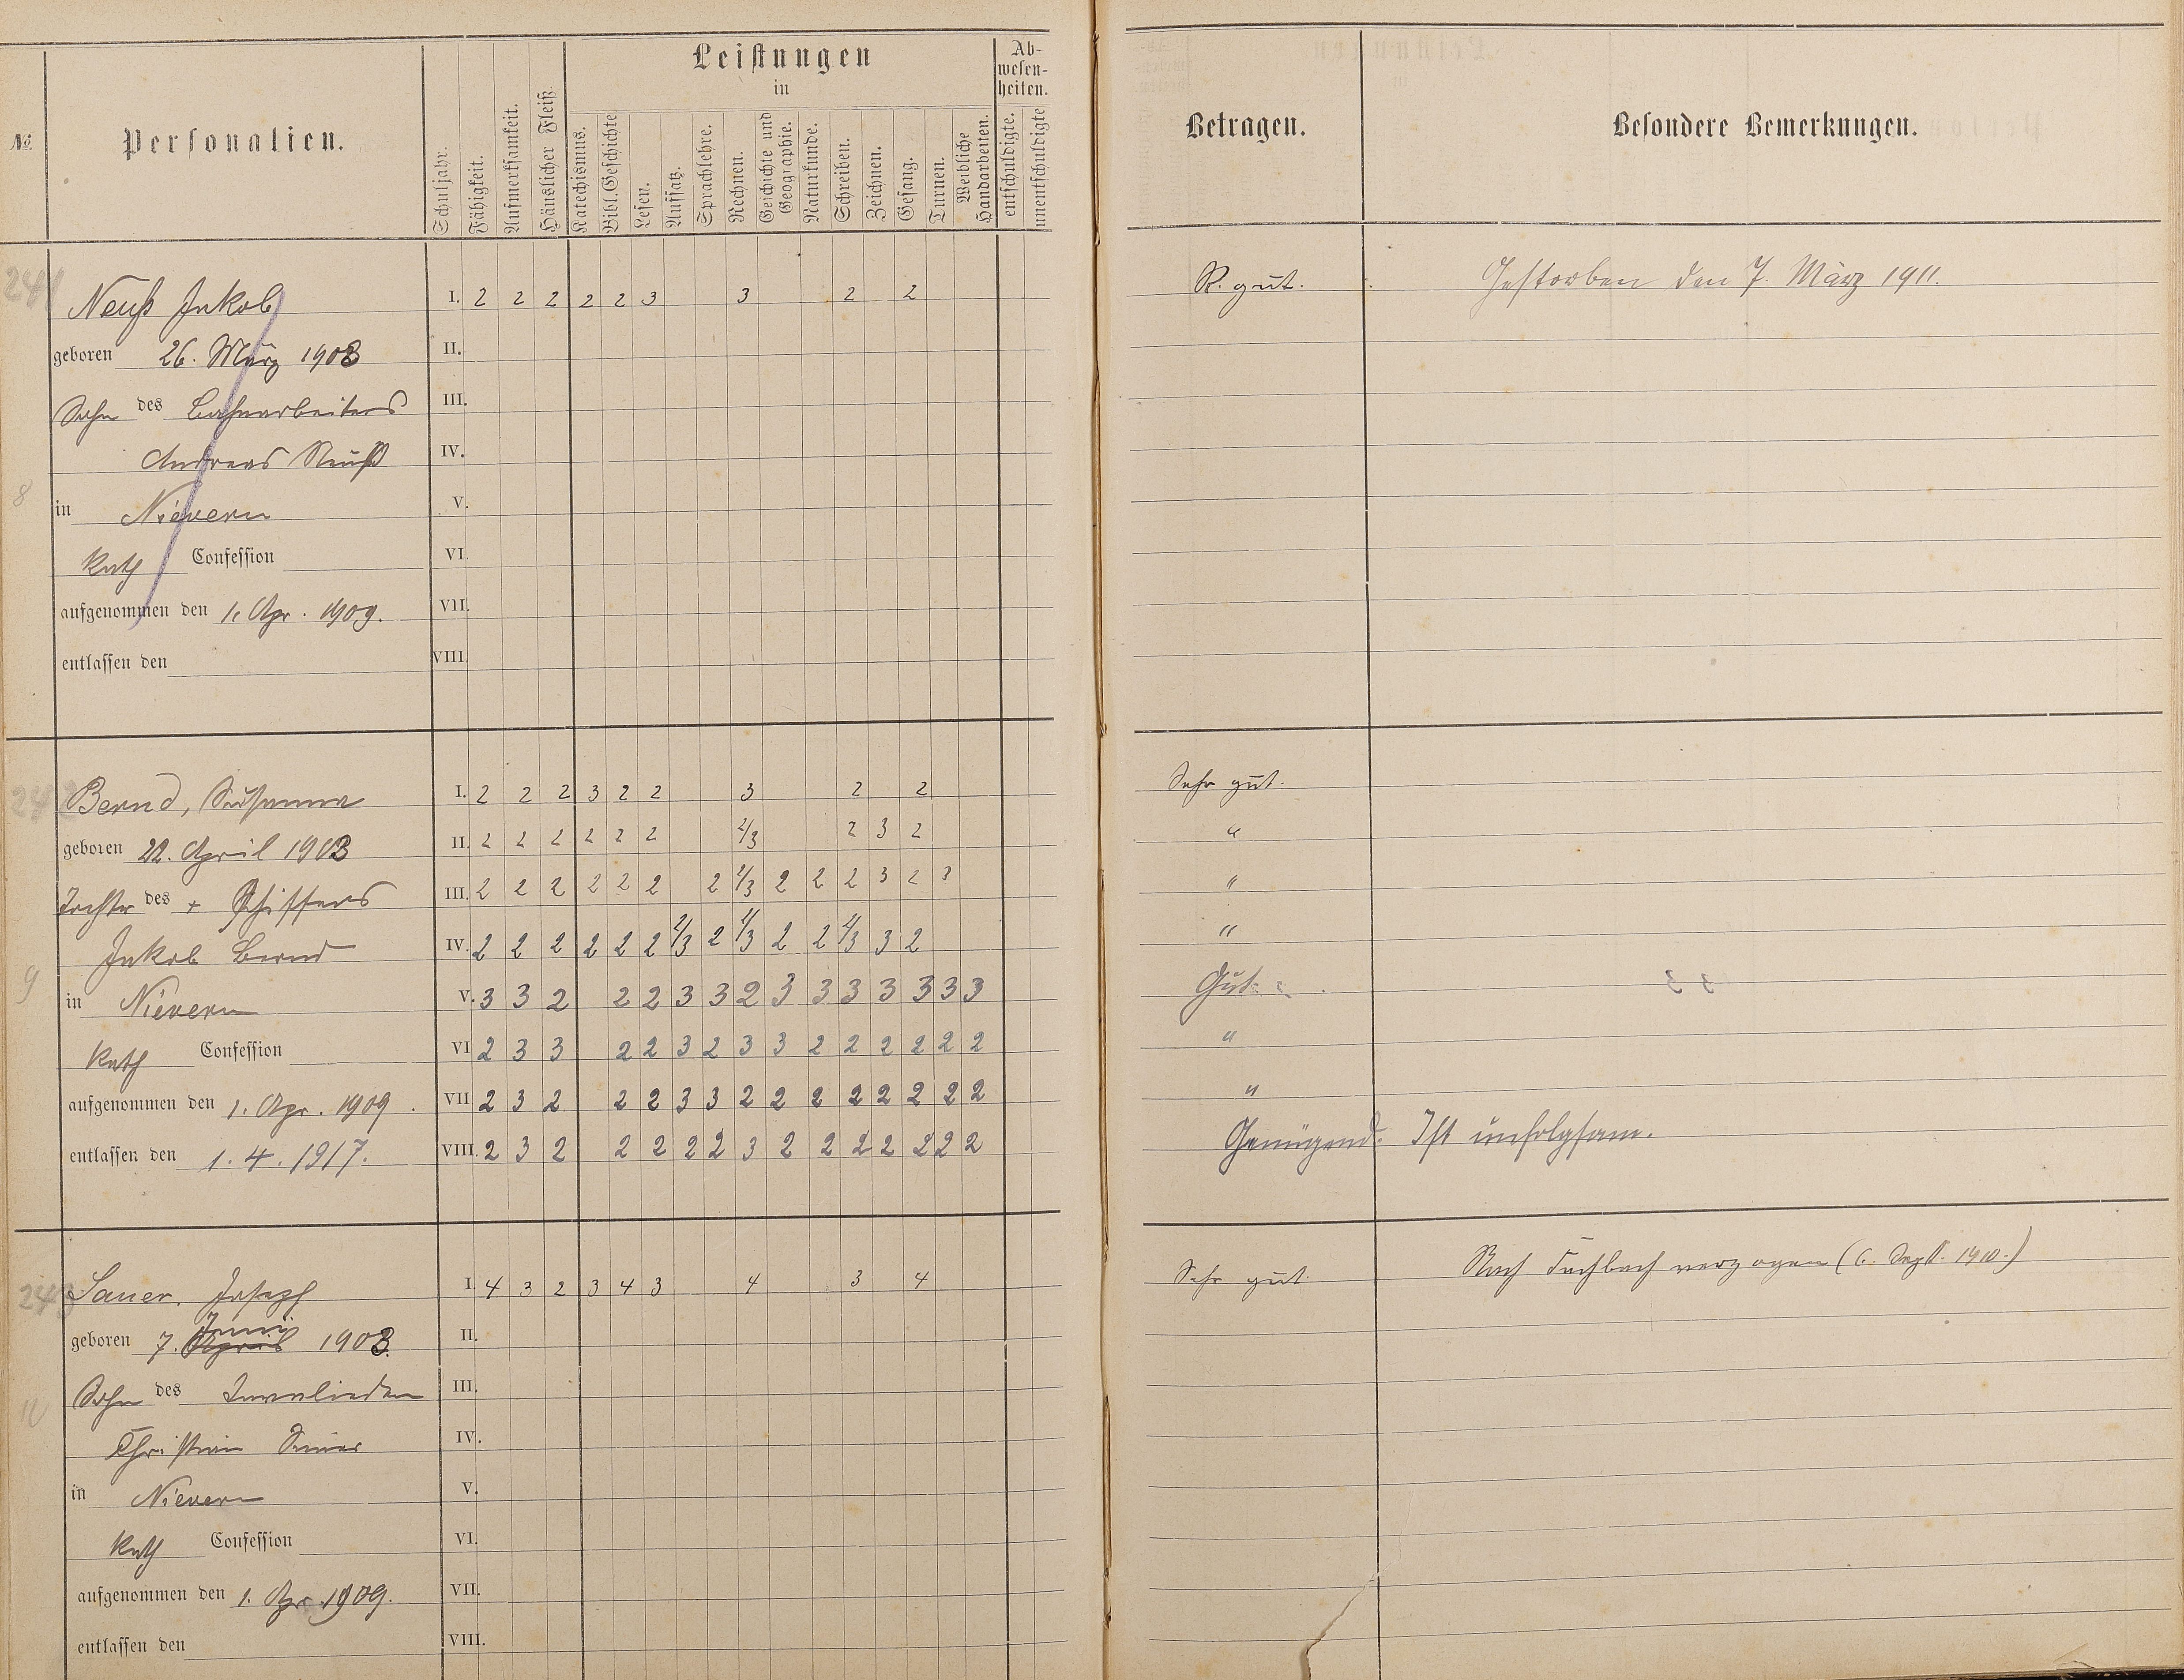 Leistungen
in
Ab-
wesen-
heiten.
№
Personalien.
Schuljahr.
Fähigkeit.
Aufmerksamkeit.
Häuslicher Fleiß.
Katechismus.
Bibl. Geschichte
Lesen.
Aufsatz.
Sprachlehre.
Rechnen.
Geschichte und
Geographie.
Naturkunde.
Schreiben.
Zeichnen.
Gesang.
Turnen.
Weibliche
Handarbeiten.
entschuldigte.
unentschuldigte
Betragen.
Besondere Bemerkungen.
241
Neuß Jakob
I. 2 2 2 2 2 3 3 2 2
R. gut.
Gestorben den 7. März 1911.
geboren 26. März 1903
II.
Sohn des Bahnarbeiters
III.
Andreas Neuß
IV.
8
in Nievern
V.
Kath Confession
VI.
aufgenommen den 1. Apr. 1909.
VII.
entlassen den
VIII.
242
Bernd, Susanna
I. 2 2 2 3 2 2 3 2 2
Sehr gut.
geboren 22. April 1903
II. 2 2 2 2 2 2 2/3 2 3 2
"
Tochtr des + Schiffers
III. 2 2 2 2 2 2 2 2/3 2 2 2 3 2 3
"
Jakob Bernd
IV. 2 2 2 2 2 2 2/3 2 2/3 2 2 2/3 3 2
"
9
in Nievern
V. 3 3 2 2 2 3 3 2 3 3 3 3 3 3 3
Gut.
Kath Confession
VI 2 3 3 2 2 3 2 3 3 2 2 2 2 2 2
"
aufgenommen den 1. Apr. 1909.
VII 2 3 2 2 2 3 3 2 2 2 2 2 2 2 2
"
entlassen den 1. 4. 1917.
VIII. 2 3 2 2 2 2 2 3 2 2 2 2 2 2 2
Genügend. Ist unfolgsam.
243
Sauer, Joseph
I. 4 3 2 3 4 3 4 3 4
Sehr gut.
Nach Fachbach verzogen (6. Sept. 1910.)
Juni
geboren 7. April 1903.
II.
Sohn des Invaliden
III.
10
Christian Sauer
IV.
in Nievern
V.
Kath Confession
VI.
aufgenommen den 1. Apr. 1909.
VII.
entlassen den
VIII.